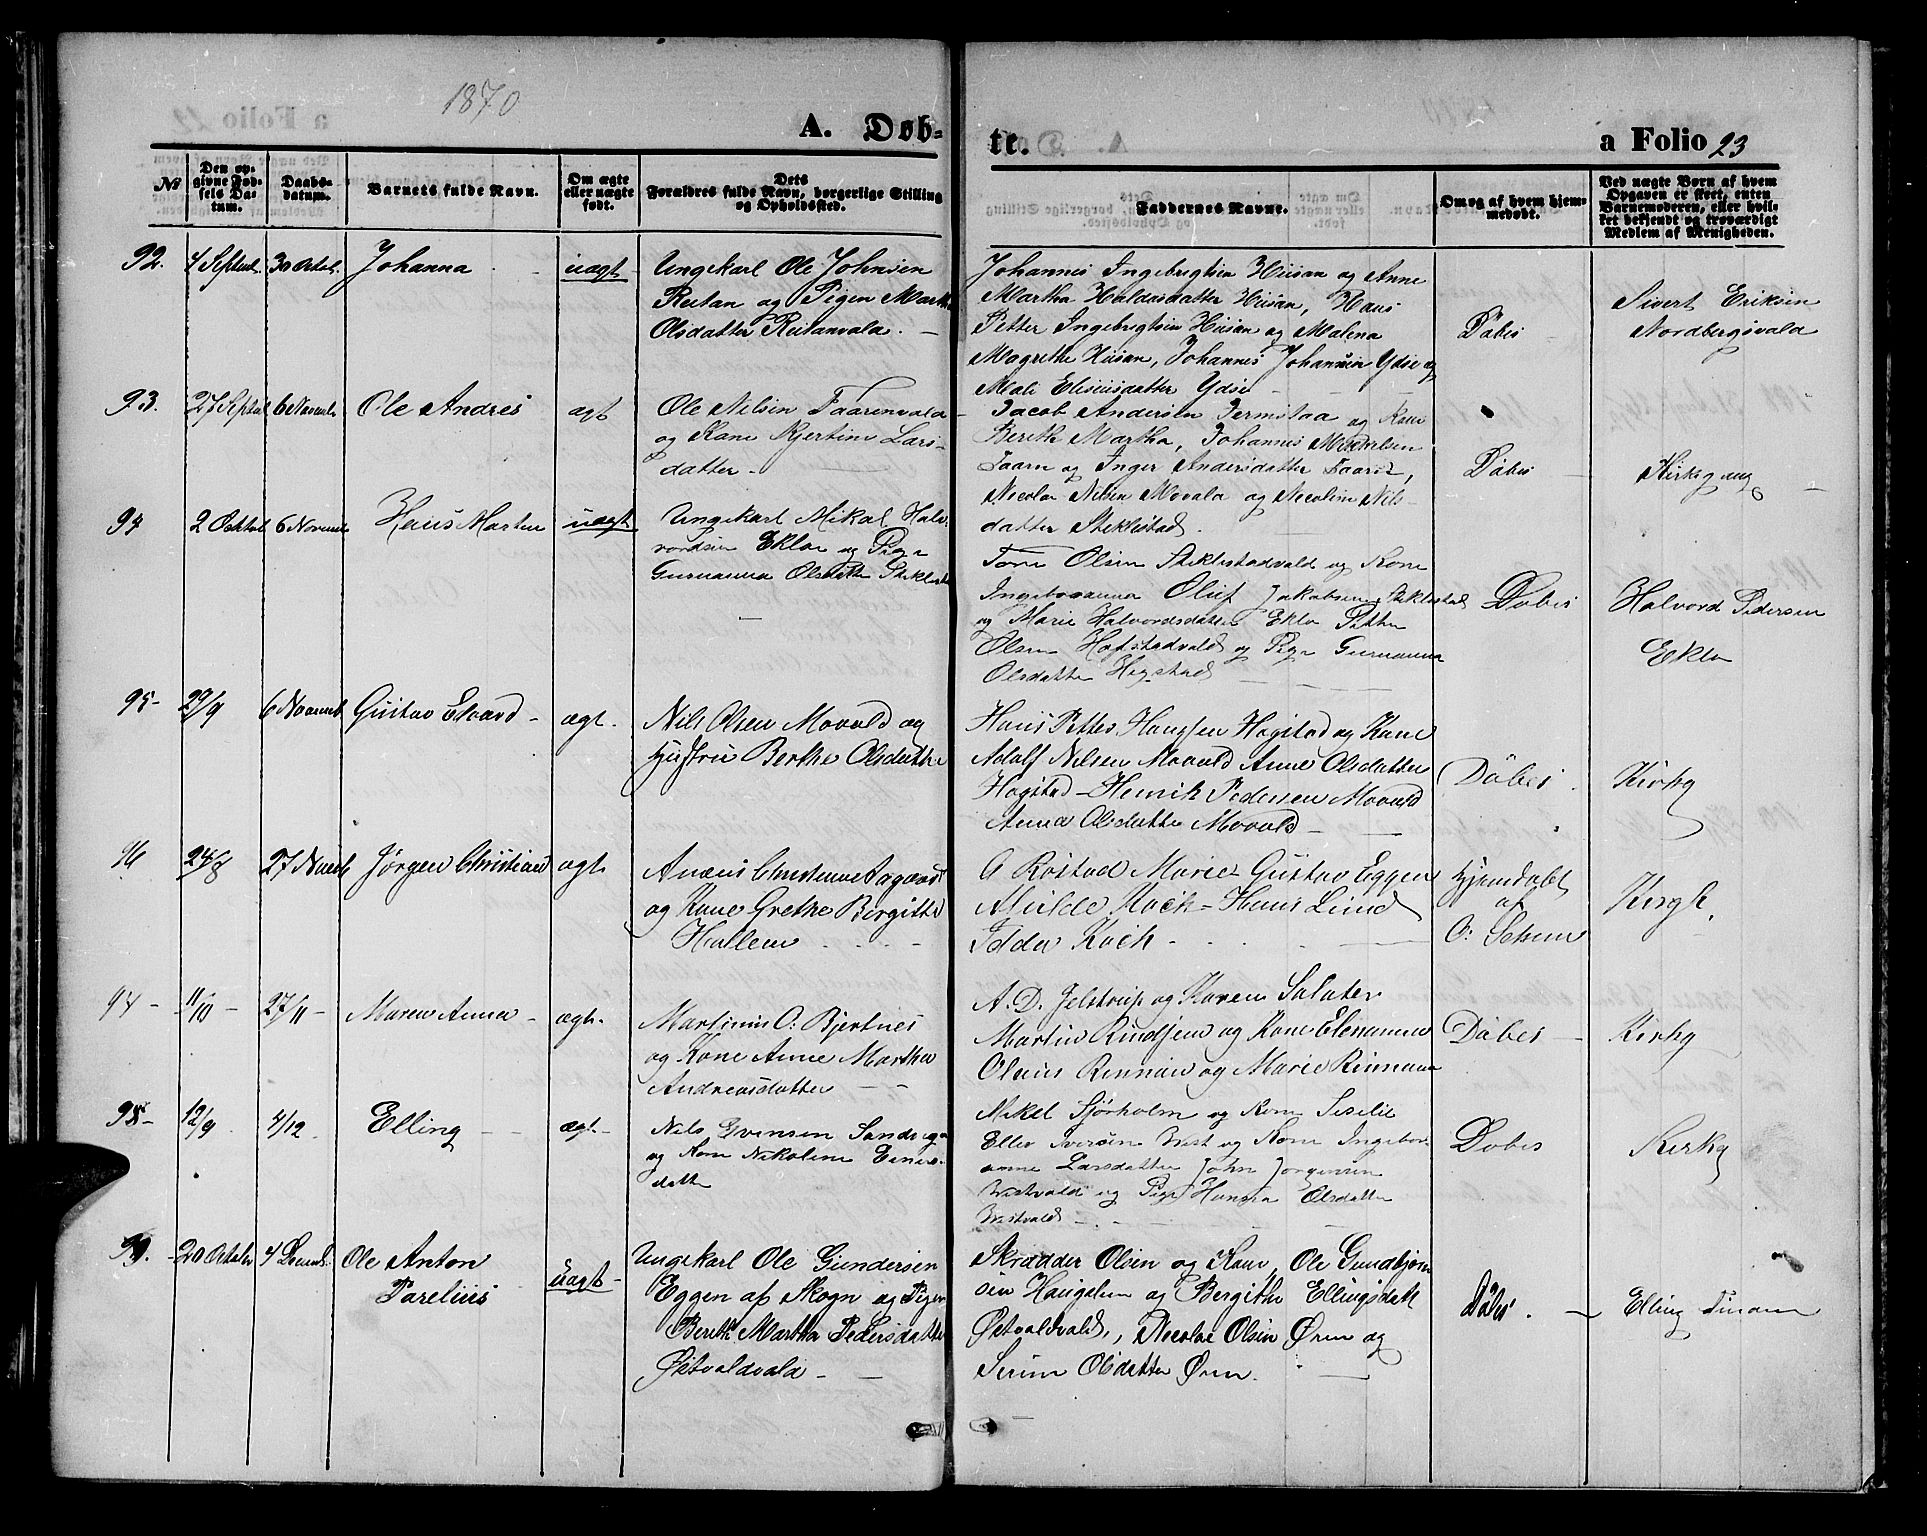 1870
A. Døb-
te.
a Folio 23
No
Den op-
givne Fød-
sels Da-
tum.
Daabs-
datum.
Barnets fulde Navn.
Om ægte
eller uægte
født.
Dets
Forældres fulde Navn, borgerlige Stilling
og Opholdssted.
Faddernes Navne.
Om og af hvem hjem-
medøbt.
Ved uægte Børn af hvem
Opgaven er skeet, enten
Barnemoderen, eller hvil-
ket bekjendt og troværdigt
Medlem af Menigheden.
92. 4 Septbr. 30 Octob. Johanna uægt
Ungekarl Ole Johnsen
Reitan og Pigen Martha
Olsdatter Reitanvald.
Johannes Ingebrigtsen Husan og Anne
Martha Haldosdatter Husan, Hans
Petter Ingebrigtsen Husan og Malena
Magrethe Husan, Johannes Johannsen Ydse og
Mali Eliseusdatter Ydse
Döbes
Sivert Eriksen
Nordbergsvald
93. 27 Septbr 6 Novemb Ole Andres ægt
Ole Nilsen Faarenvald
og Kane Kjertine Lars-
datter
Jacob Andersen Jermstaa og Kone
Bereth Martha, Johannes Mikkelsen
Faarn og Inger Andersdatter Faarn,
Nicolai Nilsen Movald og Nicoline Nils-
datter Stiklestad.
Döbes
Kirkgang
94 2 Octob 6 Novemb Hans Morten uægt
Ungekarl Mikal Hal-
vordsen Eklo og Pige
Gurnanna Olsdatter Stiklestad
Tore Olsen Stiklestadvald og Kone
Ingeboranna Oluf Jakobsen Stiklestad
og Marie Halvordsdatter Eklo Petter
Olsen Hofstadvald og Pige Gurnanna
Olsdatter Hegstad
Dobes
Halvord Pedersen
Eklo
95 29/9 6 Novemb Gustav Edvard ægt.
Nils Olsen Movald og
Hustru Berthe Olsdatter
Hans Petter Hanssen Hagstad og Kane
Adolf Nilsen Movald Anne Olsdatter
Hagstad Henrik Pedersen Movald
Anna Olsdatter Movald
Döbes
Kirkg
96 24/8 27 Novb Jørgen Christian ægt.
og Kane Grethe Birgitte
Hallem
O Rostad Marie Gustav Eggen
Milde Koch Hans Lind
Idda Koch
Hjemdøbt
af
O:
Kirgk.
97 11/10 27/11 Maren Anna ægt.
Martinus O: Bjertnes
og Kane Anne Martha
Andreasdatter
A. D. Jelstrup og Karen Salater
Martin Rindsem og Kane Elenanna
Olaus Rennan og Marie Rinnan
Döbes
Kirkg
98 12/9 4/12 Elling ægt
Nils Evensen Sandvegen
og Kone Nikoline Einers-
datter
Mikel Sjørholm og Kone Sesilie
Ellev Iversen West og Kone Ingebor-
anna Larsdatter John Jorgensen
Westvald og Pige Hansia Olsdatter
Westvald
Dobes
Kirkg
99. 20 Octobr 4 Decemb. Ole Anton
Parelius uægt
Ungekarl Ole Gundersen
Eggen af Skogn og Pigen
Bereth Martha Pedersdatter
Østvaldvald
Skrædder Olsen og Kane, Ole Gundbjørn-
sen Haugslem og Bergithe Ellingsdatt
Østvaldvald, Nicolai Olsen Øren og
Serine Olsdatter Øren.
Döbes.
Elling Tinam